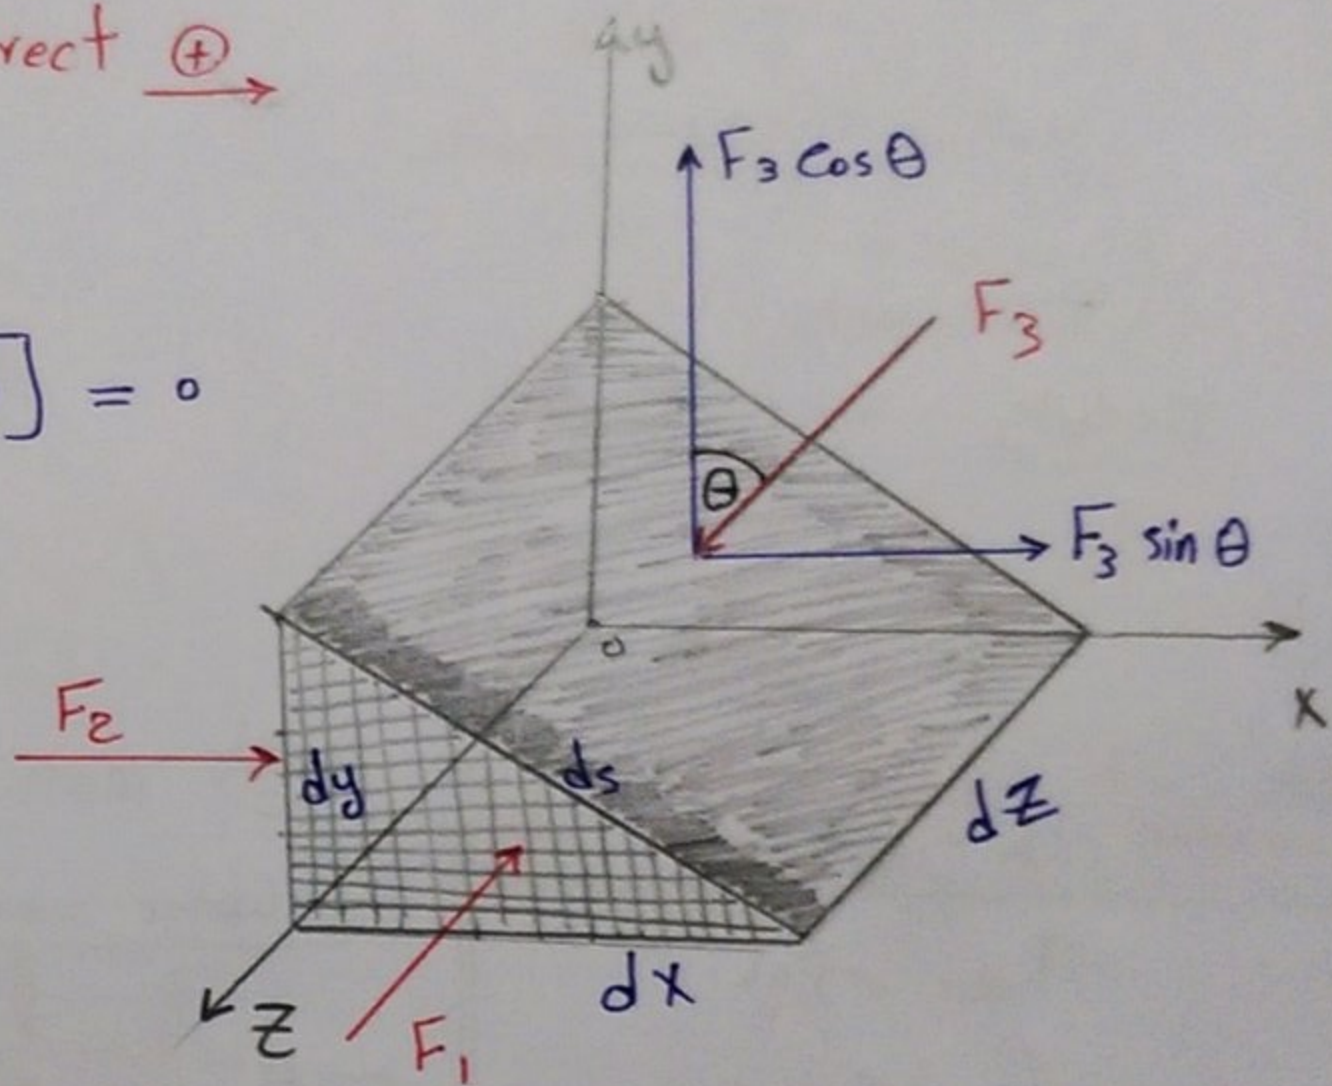 rect ⊕
y
F₃ cos θ
F₃
] = 0
θ
F₃ sin θ
o
F₂
x
dy
ds
dz
dx
z
F₁